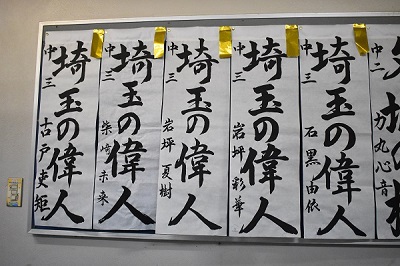 埼玉の偉人
中三 古戸吏矩
埼玉の偉人
中三 柴崎未来
埼玉の偉人
中三 岩坪夏樹
埼玉の偉人
中三 岩坪彩華
埼玉の偉人
中三 石黒由依
中二 力丸心音